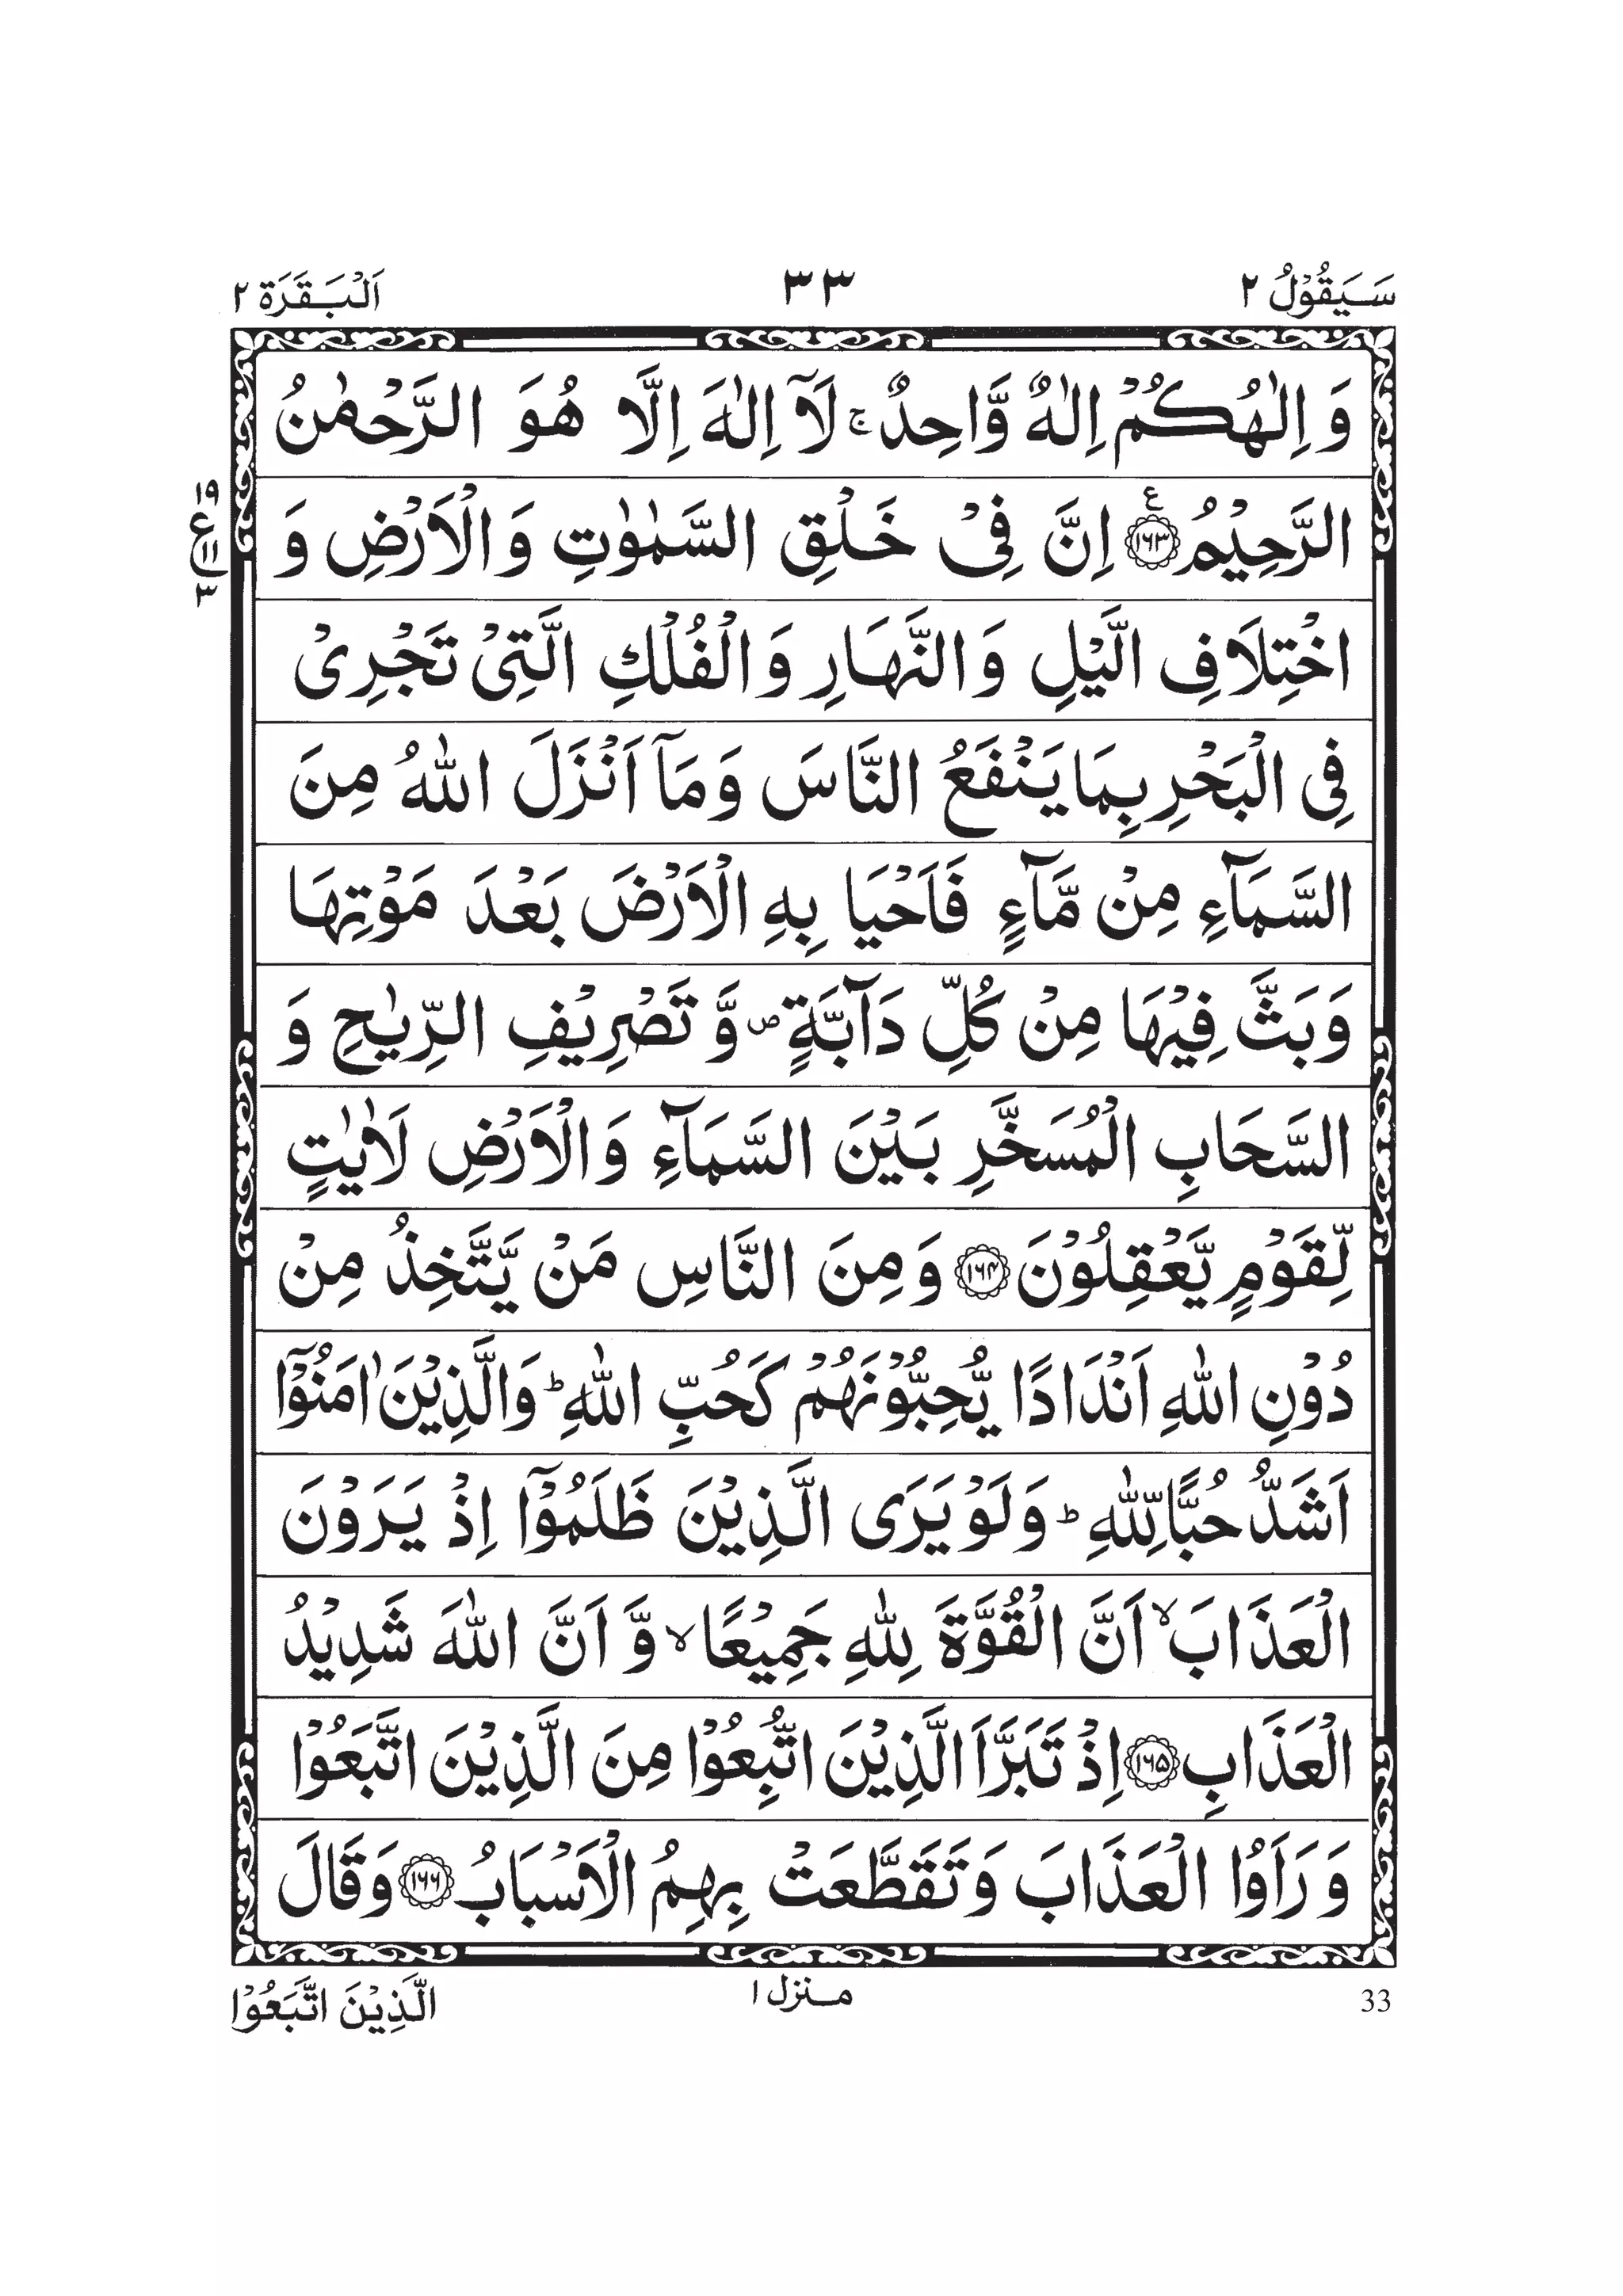 سَيَقُوْلُ ٢
٣٣
اَلْبَقَرَة ٢
وَ اِلٰهُكُمْ اِلٰهٌ وَّاحِدٌ ۚ لَاۤ اِلٰهَ اِلَّا هُوَ الرَّحْمٰنُ
الرَّحِيْمُ ﴿١٦٣﴾ ع اِنَّ فِىْ خَلْقِ السَّمٰوٰتِ وَ الْاَرْضِ وَ
١٩
ع
١١
٣
اخْتِلَافِ الَّيْلِ وَ النَّهَارِ وَ الْفُلْكِ الَّتِىْ تَجْرِىْ
فِى الْبَحْرِ بِمَا يَنْفَعُ النَّاسَ وَ مَاۤ اَنْزَلَ اللّٰهُ مِنَ
السَّمَآءِ مِنْ مَّآءٍ فَاَحْيَا بِهِ الْاَرْضَ بَعْدَ مَوْتِهَا
وَ بَثَّ فِيْهَا مِنْ كُلِّ دَآبَّةٍ ۪ وَّ تَصْرِيْفِ الرِّيٰحِ وَ
السَّحَابِ الْمُسَخَّرِ بَيْنَ السَّمَآءِ وَ الْاَرْضِ لَاٰيٰتٍ
لِّقَوْمٍ يَّعْقِلُوْنَ ﴿١٦٤﴾ وَ مِنَ النَّاسِ مَنْ يَّتَّخِذُ مِنْ
دُوْنِ اللّٰهِ اَنْدَادًا يُّحِبُّوْنَهُمْ كَحُبِّ اللّٰهِ ؕ وَ الَّذِيْنَ اٰمَنُوْۤا
اَشَدُّ حُبًّا لِّلّٰهِ ؕ وَ لَوْ يَرَى الَّذِيْنَ ظَلَمُوْۤا اِذْ يَرَوْنَ
الْعَذَابَ ۙ اَنَّ الْقُوَّةَ لِلّٰهِ جَمِيْعًا ۙ وَّ اَنَّ اللّٰهَ شَدِيْدُ
الْعَذَابِ ﴿١٦٥﴾ اِذْ تَبَرَّاَ الَّذِيْنَ اتُّبِعُوْا مِنَ الَّذِيْنَ اتَّبَعُوْا
وَ رَاَوُا الْعَذَابَ وَ تَقَطَّعَتْ بِهِمُ الْاَسْبَابُ ﴿١٦٦﴾ وَ قَالَ
33
منزل ١
الَّذِيْنَ اتَّبَعُوْا